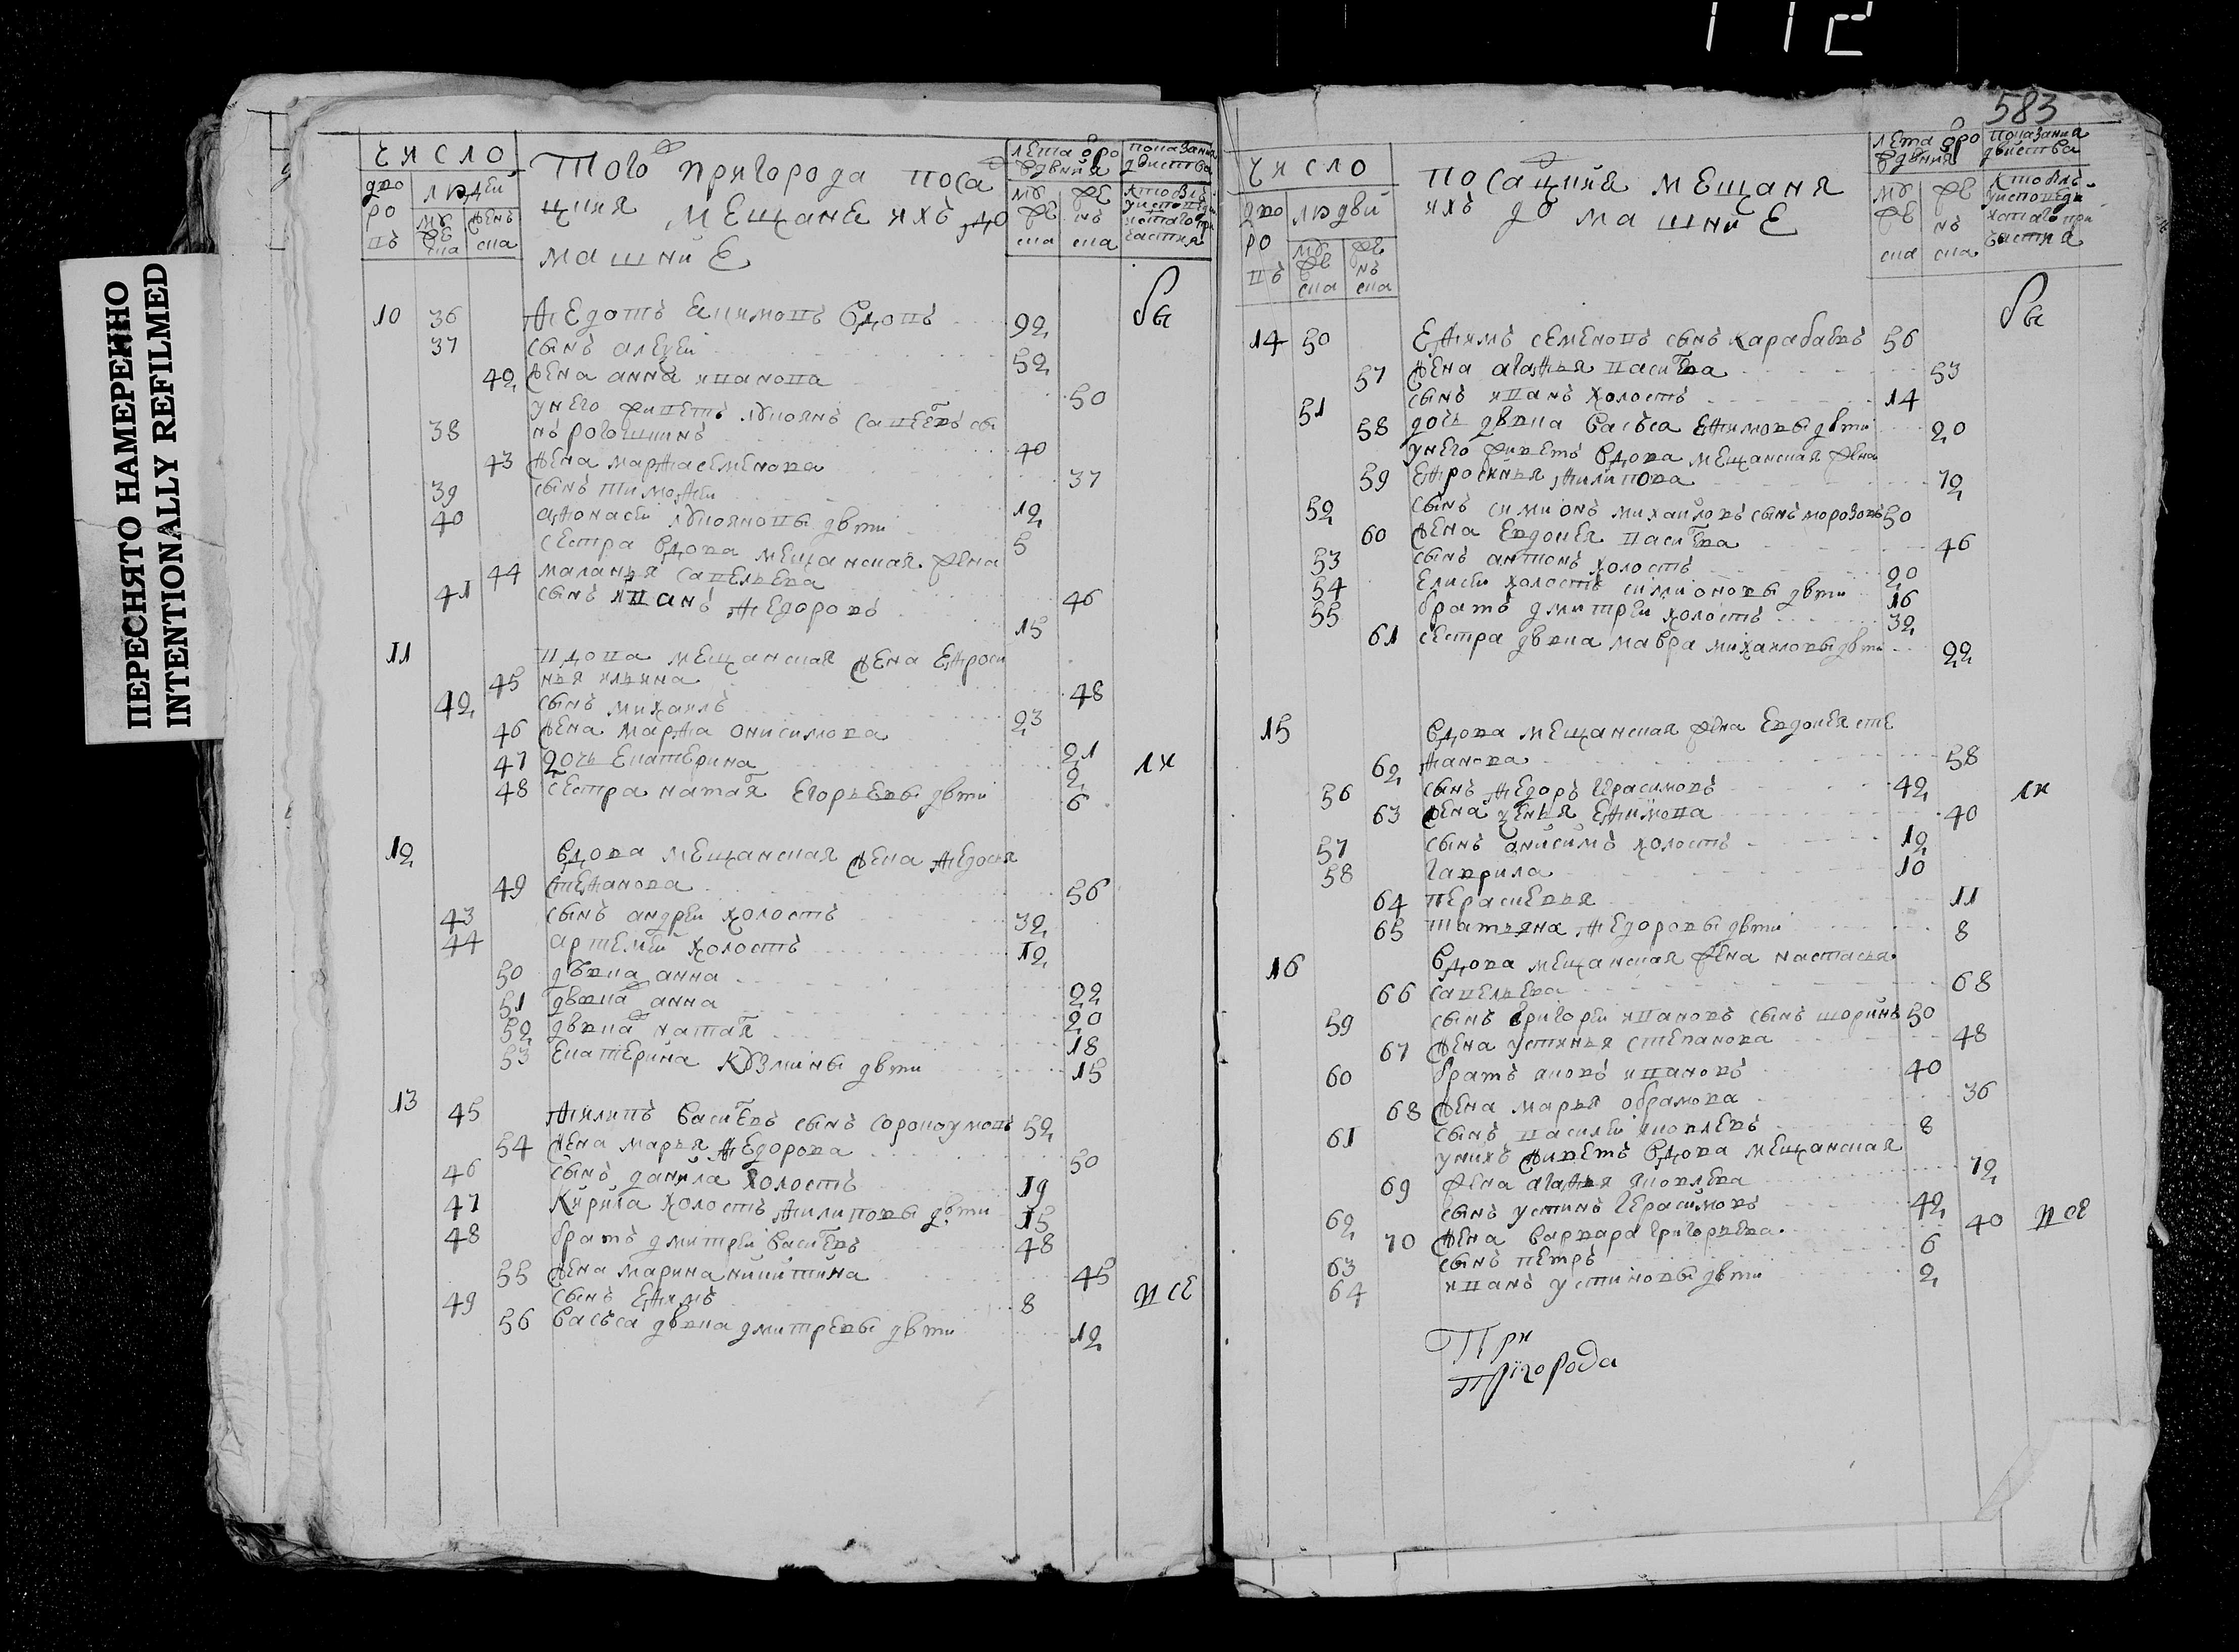 112
583
ПЕРЕСНЯТО НАМЕРЕННО
INTENTIONALLY REFILMED
число
дворовъ
людей
мужеска
женска
Того пригорода посацкия мещане ихъ до
машние
лета от рождения
мужеска
женска
показание действа
кто былъ у исповеди и святаго причастия
бы
10 36 Федотъ Екимовъ вдовъ 92
37 сынъ алексеи 52
42 жена анна иванова 50
у него живетъ лукоянъ савелевъ сы
38 нъ рогошкинъ 40
43 жена марфа семенова 37
39 сынъ тимофеи 12
40 афонасеи лукояновы дети 5
сестра вдова мещанская жена
44 маланья савельева 46
41 сынъ иванъ федоровъ 15
11 вдова мещанская жена ефроси
45 нья ильина 48
42 сынъ михаилъ 23
46 жена марфа онисимова 21
47 дочь екатерина 2
ли
48 сестра наталя егорьевы дети 6
12 вдова мещанская жена федося
49 стефанова 56
43 сынъ андреи холостъ 32
44 артемеи холостъ 12
50 девка анна 22
51 девка анна 20
52 девка наталя 18
53 екатерина кузмины дети 15
13 45 филипъ василевъ сынъ сорокоумовъ 52
54 жена марья федорова 50
46 сынъ данила холостъ 19
47 кирила холостъ филиповы дети 15
48 братъ дмитреи василевъ 48
55 жена марина никитина 45
49 сынъ ефимъ 8
все
56 васъса девка дмитревы дети 12
число
дворовъ
людей
мужеска
женска
посацкия мещаня
ихъ домашние
лета от рождения
мужеска
женска
показание действа
кто былъ у исповеди и святаго причастия
бы
14 50 Ефимъ семеновъ сынъ карабаевъ 56
57 жена агафья василева 53
51 сынъ иванъ холостъ 14
58 дочь девка васъса ефимовы дети 20
у него живетъ вдова мещанская жена
59 ефросинья филипова 72
52 сынъ симионъ михаиловъ сынъ морозовъ 50
60 жена евдокея василева 46
53 сынъ антонъ холостъ 20
54 елисеи холостъ симионовы дети 16
55 братъ дмитреи холостъ 32
61 сестра девка мавра михаиловы дети 22
15 вдова мещанская жена евдокея сте
62 фанова 58
56 сынъ федоръ герасимовъ 42
ли
63 жена ксенья ефимова 40
57 сынъ анисимъ холостъ 12
58 гаврила 10
64 перасковья 11
65 татьяна федоровы дети 8
16 вдова мещанская жена настасья
66 савельева 68
59 сынъ григореи ивановъ сынъ шоринъ 50
67 жена устинья степанова 48
60 братъ яковъ ивановъ 40
68 жена марья обрамова 36
61 сынъ василеи яковлевъ 8
у нихъ живетъ вдова мещанская
69 жена агафья яковлева 72
62 сынъ устинъ герасимовъ 42
70 жена варвара григорьева 40
все
63 сынъ петръ 6
64 иванъ устиновы дети 2
При
пригорода